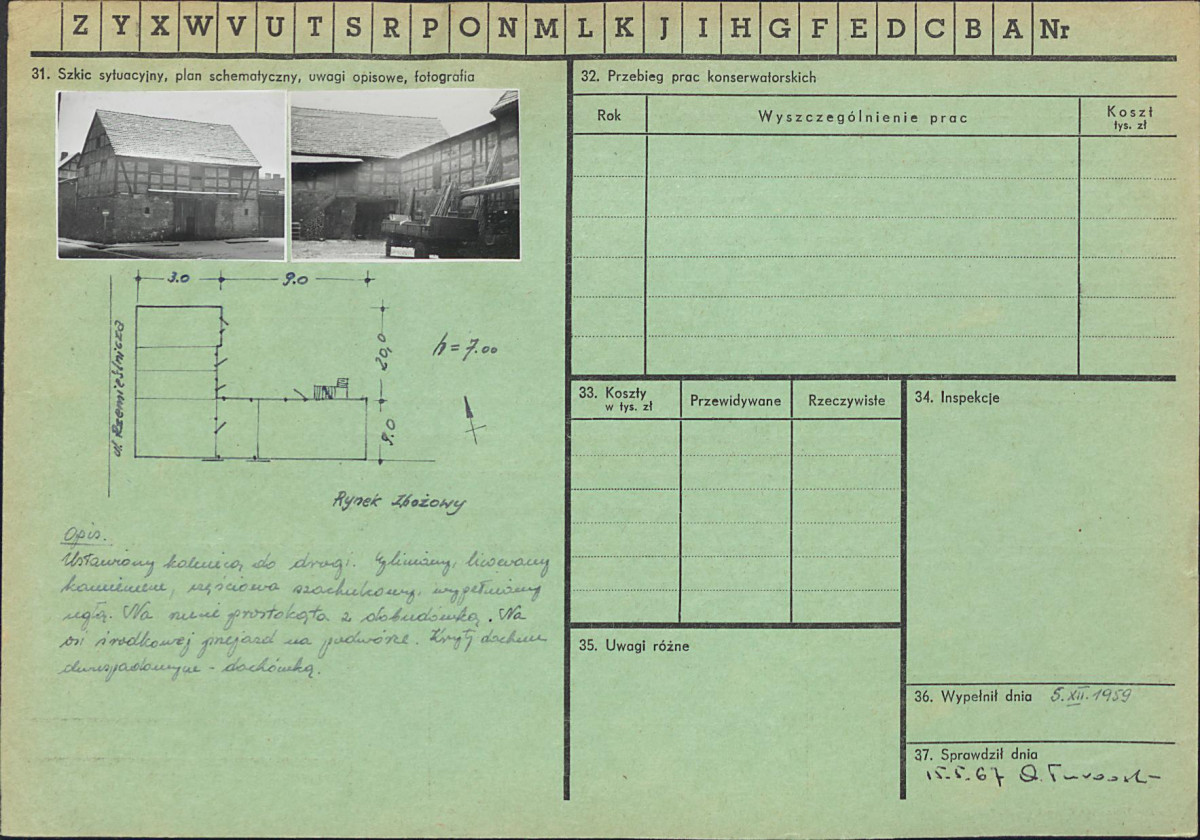 Z Y X W V U T S R P O N M L K J I H G F E D C B A Nr
31. Szkic sytuacyjny, plan schematyczny, uwagi opisowe, fotografia
3.0 9.0
ul. Rzemieślnicza
20,0
h = 7.00
9.0
Rynek Zbożowy
Opis.
Ustawiony kalenicą do drogi. licowany
kamieniem, częściowo szachulcowy, wypełniony
cegłą. Na rzucie prostokąta z dobudówką. Na
osi środkowej przejazd na podwórze. Kryty dachem
dwuspadowym - dachówką.
32. Przebieg prac konserwatorskich
Rok Wyszczególnienie prac Koszt
tys. zł
33. Koszty
w tys. zł
Przewidywane Rzeczywiste
34. Inspekcje
35. Uwagi różne
36. Wypełnił dnia 5.XII.1959
37. Sprawdził dnia
15.5.67